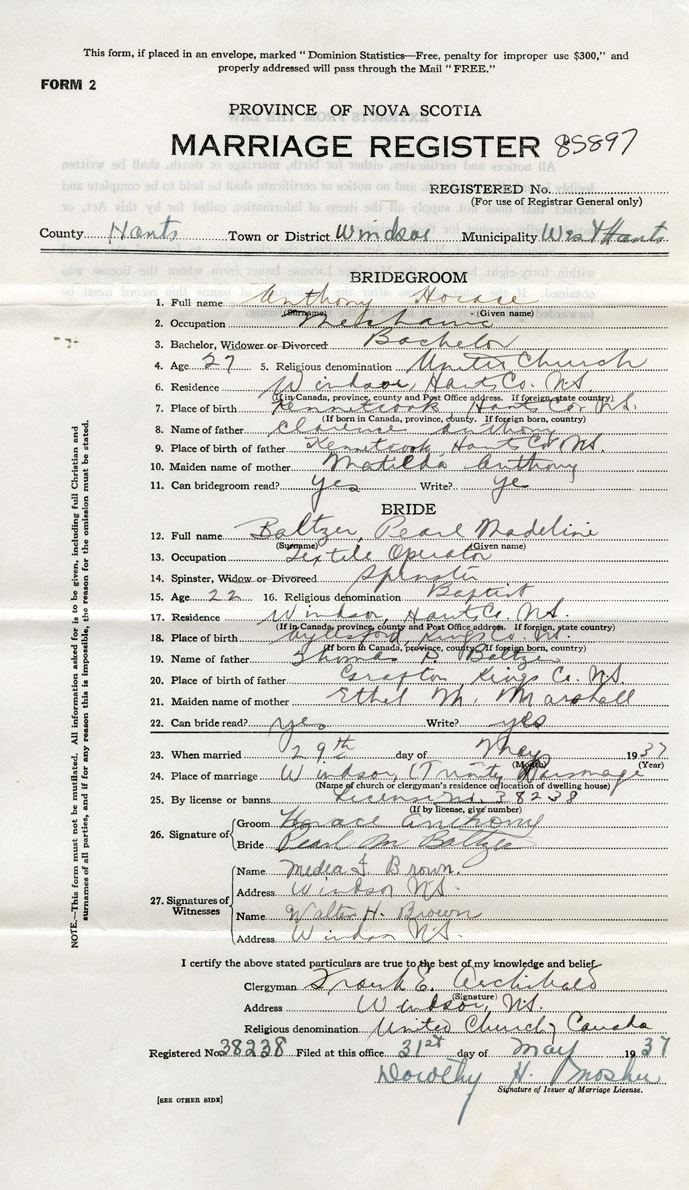 This form, if placed in an envelope, marked "Dominion Statistics—Free, penalty for improper use $300," and
properly addressed will pass through the Mail "FREE."
FORM 2
PROVINCE OF NOVA SCOTIA
MARRIAGE REGISTER 85897
REGISTERED No.
(For use of Registrar General only)
County Hants Town or District Windsor Municipality West Hants
BRIDEGROOM
1. Full name Anthony Horace
(Surname) (Given name)
2. Occupation Mechanic
3. Bachelor, Widower or Divorced Bachelor
4. Age 27 5. Religious denomination United Church
6. Residence Windsor, Hants Co. N.S.
(If in Canada, province, county and Post Office address. If foreign, state country)
7. Place of birth Kennetcook Hants Co. N.S.
(If born in Canada, province, county. If foreign born, country)
8. Name of father Clarence Anthony
9. Place of birth of father Kennetcook, Hants Co. N.S.
10. Maiden name of mother Matilda Anthony
11. Can bridegroom read? yes Write? ye
BRIDE
12. Full name Baltzer, Pearl Madeline
(Surname) (Given name)
13. Occupation Textile Operator
14. Spinster, Widow or Divorced Spinster
15. Age 22 16. Religious denomination Baptist
17. Residence Windsor, Hants Co. N.S.
(If in Canada, province, county and Post Office address. If foreign, state country)
18. Place of birth Aylesford, Kings Co. N.S.
(If born in Canada, province, county. If foreign born, country)
19. Name of father Thomas P. Baltzer
20. Place of birth of father Grafton, Kings Co. N.S.
21. Maiden name of mother Ethel M. Marshall
22. Can bride read? yes Write? yes
23. When married 29th day of May 1937
(Month) (Year)
24. Place of marriage Windsor, (Trinity Parsonage
(Name of church or clergyman's residence or location of dwelling house)
25. By license or banns License No. 38238
(If by license, give number)
26. Signature of
Groom Horace Anthony
Bride Pearl M. Baltzer
27. Signatures of Witnesses
Name Medea I. Brown.
Address Windsor N.S.
Name Walter H. Brown
Address Windsor N.S.
I certify the above stated particulars are true to the best of my knowledge and belief.
Clergyman Frank E. Archibald
(Signature)
Address Windsor, N.S.
Religious denomination United Church of Canada
Registered No. 38238 Filed at this office 31st day of May 1937
Dorothy H. Mosher
Signature of Issuer of Marriage License.
[SEE OTHER SIDE]
NOTE.—This form must not be mutilated. All information asked for is to be given, including full Christian and
surnames of all parties, and if for any reason this is impossible, the reason for the omission must be stated.